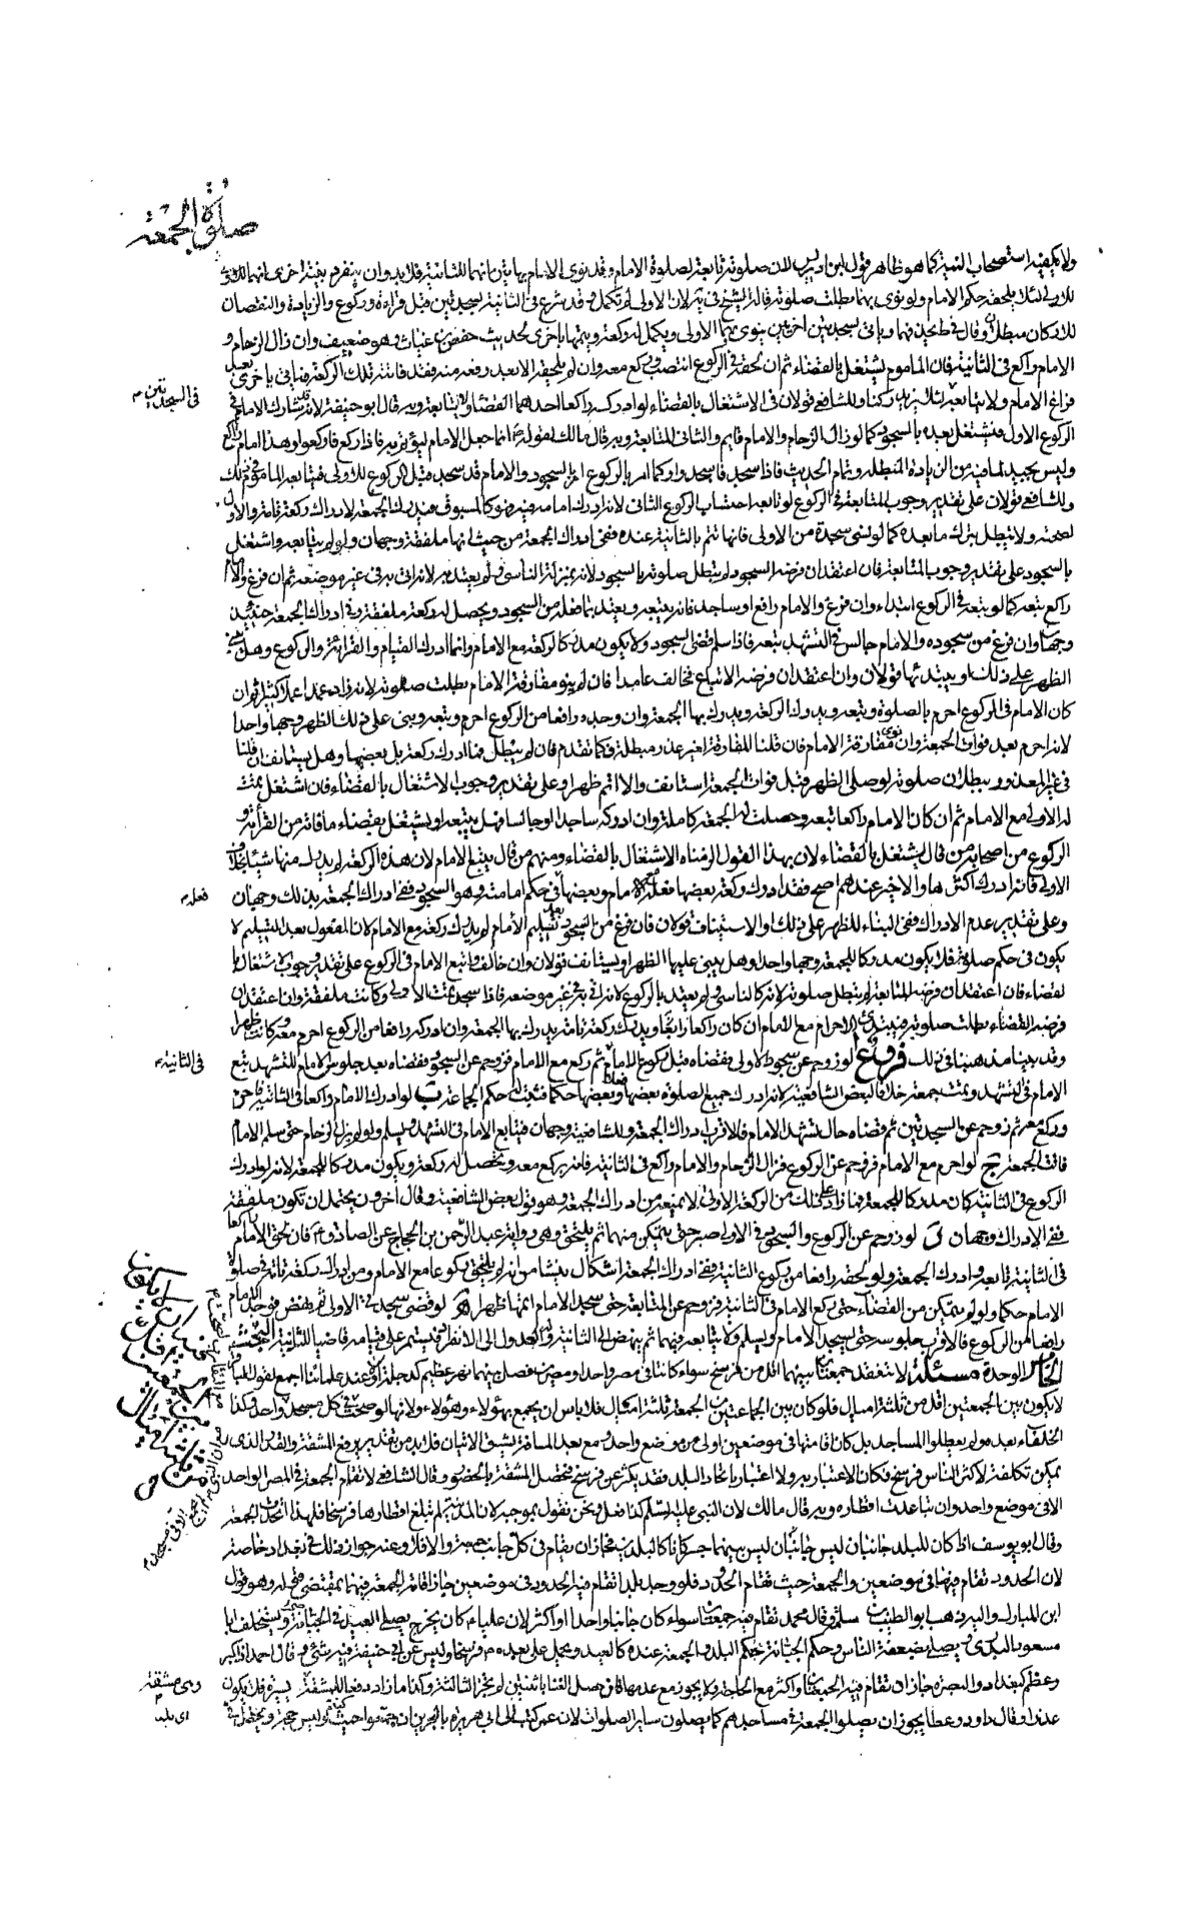 صلوة الجمعة
ولا يكفيه استصحاب النية كما هو ظاهر قول ابن ادريس لان صلوته تابعة لصلوة الامام وقد نوى الامام بهاتين انهما للثانية فلا بد وان ينفرد بنية اخرى انهما
للاولى لئلا يلحقه حكم الامام ولو نوى بهما بطلت صلوته قاله الشيخ في لان الاولى لم تكمل وقد شرع في الثانية بسجدتين قبل قراءة وركوع والزيادة والنقصان
للاركان مبطلان وقال في ط يحذفهما وياتي بسجدتين اخريين ينوى بهما الاولى ويكمل له ركعة ويتمها باخرى لحديث حفص بن غياث وهو ضعيف وان زال الزحام و
الامام راكع في الثانية فان الماموم يشتغل بالقضاء ثم ان لحقه في الركوع انتصب وركع معه وان لم يلحقه الا بعد رفعه منه فقد فاتته تلك الركعة فياتي باخرى بعد
فراغ الامام ولا يتابعه لئلا يزيد ركنا وللشافعي قولان في الاشتغال بالقضاء لو ادركه راكعا احدهما القضاء ولا يتابعه وبه قال ابو حنيفة لانه شارك الامام في
في السجدتين م
الركوع الاول فيشتغل بعده بالسجود كما لو زال الزحام والامام قايم والثاني المتابعة وبه قال مالك لقوله انما جعل الامام ليؤتم به فاذا ركع فاركعوا وهذا امام راكع
وليس بجيد لما فيه من الزيادة المبطلة وتمام الحديث فاذا سجد فاسجدوا وكما امر بالركوع امر بالسجود والامام قد سجد قبل الركوع للاولى فيتابعه الماموم في ذلك
وللشافعي قولان على تقدير وجوب المتابعة في الركوع لو تابعه احتساب الركوع الثاني لانه ادرك امامه فيه فهو كالمسبوق فيدرك الجمعة لادراك ركعة تامة والاول
لصحته ولا تبطل بترك ما بعده كما لو نسي سجدة من الاولى فانها تتم بالثانية عنده ففي ادراك الجمعة من حيث انها ملفقة وجهان ولو لم يتابعه واشتغل
بالسجود على تقدير وجوب المتابعة فان اعتقد ان فرضه السجود لم تبطل صلوته بالسجود لانه بمنزلة الناسي ولم يعتد به لانه اتى به في غير موضعه ثم ان فرغ والامام
راكع تبعه كما لو تبعه في الركوع ابتداء وان فرغ والامام رافع او ساجد فانه يتبعه ويعتد بما فعله من السجود ويحصل له ركعة ملفقة وفي ادراك الجمعة حينئذ
وجهان وان فرغ من سجوده والامام جالس في التشهد تبعه فاذا سلم قضى السجود ولا يكون مدركا لركعة مع الامام وانما ادرك القيام والقراءة والركوع وهل يبني
الظهر على ذلك او يبتدئها قولان وان اعتقد ان فرضه الاتباع فخالف عامدا فان لم ينو مفارقة الامام بطلت صلوته لانه زاد عمدا عملا كثيرا ثم ان
كان الامام في الركوع احرم بالصلوة وتبعه ويدرك الركعة ويدرك بها الجمعة وان وجده رافعا من الركوع احرم وتبعه ويبني على ذلك الظهر وجها واحدا
لانه احرم بعد فوات الجمعة وان نوى مفارقة الامام فان قلنا المفارقة لغير عذر مبطلة فكما تقدم فان لم تبطل فما ادرك ركعة بل بعضها وهل يستانف ان قلنا
في غير المعذور ببطلان صلوته لو صلى الظهر قبل فوات الجمعة استانف والا اتم ظهرا وعلى تقدير وجوب الاشتغال بالقضاء فان اشتغل تمت
له الاولى مع الامام ثم ان كان الامام راكعا تبعه وحصلت له الجمعة كاملة وان ادركه ساجدا او جالسا فهل يتبعه او يشتغل بقضاء ما فاته من القراءة و
الركوع من اصحابه من قال يشتغل بالقضاء لان بهذا القول الزمناه الاشتغال بالقضاء ومنهم من قال يتبع الامام لان هذه الركعة لم يدرك منها شيئا بخلاف
الاولى فانه ادرك اكثرها والاخير عندهم اصح فقد ادرك ركعة بعضها فعله مع الامام وبعضها في حكم امامته وهو السجود ففي ادراك الجمعة بذلك وجهان
فعله م
وعلى تقدير عدم الادراك ففي البناء للظهر على ذلك او الاستيناف قولان فان فرغ من السجود بعد تسليم الامام لم يدرك ركعة مع الامام لان المفعول بعد التسليم لا
يكون في حكم صلوته فلا يكون مدركا للجمعة وجها واحدا وهل يبني عليها الظهر او يستانف قولان وان خالف واتبع الامام في الركوع على تقدير وجوب الاشتغال با
لقضاء فان اعتقد ان فرضه المتابعة لم تبطل صلوته لانه كالناسي ولم يعتد بالركوع لانه اتى به في غير موضعه فاذا سجد تمت الاولى وكانت ملفقة وان اعتقد ان
فرضه القضاء بطلت صلوته فيبتدئ الاحرام مع الامام ان كان راكعا رابعا ويدرك ركعة تامة يدرك بها الجمعة وان ادركه رافعا من الركوع احرم معه وكانت ظهرا
وقد بينا مذهبنا في ذلك فروع ا لو زوحم عن سجود الاولى وقضاه قبل ركوع الامام ثم ركع مع الامام فزوحم عن السجود فقضاه بعد جلوس الامام للتشهد تبع
في الثانية م
الامام في التشهد وتمت جمعته خلافا لبعض الشافعية لانه ادرك جميع الصلوة بعضها فعلا وبعضها حكما فثبت له حكم الجماعة ب لو ادرك الامام راكعا في الثانية فاحرم
وركع معه ثم زوحم عن السجدتين ثم قضاه حال تشهد الامام فالاقرب ادراك الجمعة وللشافعية وجهان فيتابع الامام في التشهد ويسلم ولو لم يزل الزحام حتى سلم الامام
فاتت الجمعة ج لو احرم مع الامام فزوحم عن الركوع فزال الزحام والامام راكع في الثانية فانه يركع معه ويحصل له ركعة ويكون مدركا للجمعة لانه لو ادرك
الركوع في الثانية كان مدركا للجمعة فما زاد على ذلك من الركعة الاولى لا يمنعه من ادراك الجمعة وهو قول بعض الشافعية وقال اخرون يحتمل ان تكون ملفقة
ففي الادراك وجهان د لو زوحم عن الركوع والسجود في الاولى صبر حتى يتمكن منهما ثم يلتحق وهو رواية عبد الرحمن بن الحجاج عن الصادق فان لحق الامام راكعا
في الثانية تابعه وادرك الجمعة ولو لحقه رافعا من ركوع الثانية ففي ادراك الجمعة اشكال ينشا من انه لم يلحق ركوعا مع الامام ومن ادراك ركعة تامة في صلوة
الامام حكما ولو لم يتمكن من القضاء حتى ركع الامام في الثانية فزوحم عن المتابعة حتى سجد الامام اتمها ظهرا ه لو قضى سجدتي الاولى ثم نهض فوجد الامام
رافعا من الركوع فالاقرب جلوسه حتى يسجد الامام ويسلم ولا يتابعه فيهما ثم ينهض الى الثانية وله العدول الى الانفراد فيستمر على قيامه قاضيا للثانية البحث
الخامس الوحدة مسئلة لا تنعقد جمعتان بينهما اقل من فرسخ سواء كانتا في مصر واحد او مصرين فصل بينهما نهر عظيم كدجلة او لا عند علمائنا اجمع لقول الباقر
لا يكون بين الجمعتين اقل من ثلثة اميال فلو كان بين الجماعتين من الجمعة ثلثة اميال فلا باس ان يجمع بهؤلاء وهؤلاء ولانها لو صحت في كل مسجد واحد وكذا
الخلفاء بعده ولم يعطلوا المساجد بل كان اقامتها في موضعين اولى من موضع واحد ومع بعد المسافة يشق الاتيان فلا بد من تقدير يرفع المشقة والقدر الذي
يمكن تكلفه لاكثر الناس فرسخ فكان الاعتبار به ولا اعتبار باتحاد البلد فقد يكثر عن فرسخ فتحصل المشقة بالحضور وقال الشافعي لا تقام الجمعة في المصر الواحد
الا في موضع واحد وان تباعدت اقطاره وبه قال مالك لان النبي عليه السلم كذا فعل ونحن نقول بموجبه لان المدينة لم تبلغ اقطارها فرسخا فلهذا اتحدت الجمعة
وقال ابو يوسف اذا كان للبلد جانبان ليس بينهما جسر كانا كالبلدين فجاز ان يقام في كل جانب جمعة والا فلا وعنه جواز ذلك في بغداد خاصة
لان الحدود تقام فيها في موضعين والجمعة حيث تقام الحدود فلو وجد بلد اتقام فيه الحدود في موضعين جاز اقامة الجمعة فيهما بمقتضى قوله وهو قول
ابن المبارك واليه ذهب ابو الطيب بن سلمة وقال محمد تقام فيه جمعتان سواء كان جانبا واحدا او اكثر لان عليا كان يخرج يصلي العيد في الجبانة ويستخلف ابا
مسعود البدري يصلي بضعفة الناس وحكم الجبانة حكم البلد والجمعة عنده كالعيد وليس عن ابي حنيفة فيه شيء وقال احمد اذا كبر
وعظم كبغداد والبصرة جاز ان تقام فيه الجمعتان واكثر مع الحاجة ولا يجوز مع عدمها فان حصل الغنا باثنتين لم تجز الثالثة وكذا ما زاد دفعا للمشقة يسيرة فلا يكون
وهي مشقة
اي بلد م
عذرا وقال داود وعطا يجوز ان يصلوا الجمعة في مساجدهم كما يصلون ساير الصلوات لان عمر كتب الى ابي هريرة بالبحرين ان جمعوا حيث كنتم وليس حجة